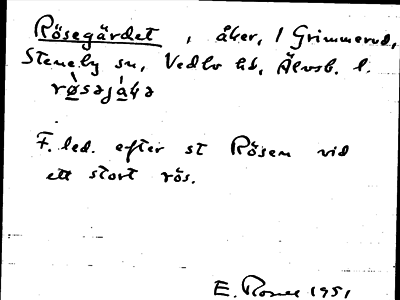 Rösegärdet, åker, / Grimmerud,
Steneby sn, Vedbo hd, Älvsb. l.
F. led. efter st Rösen vid
ett stort rös.
E. 1951